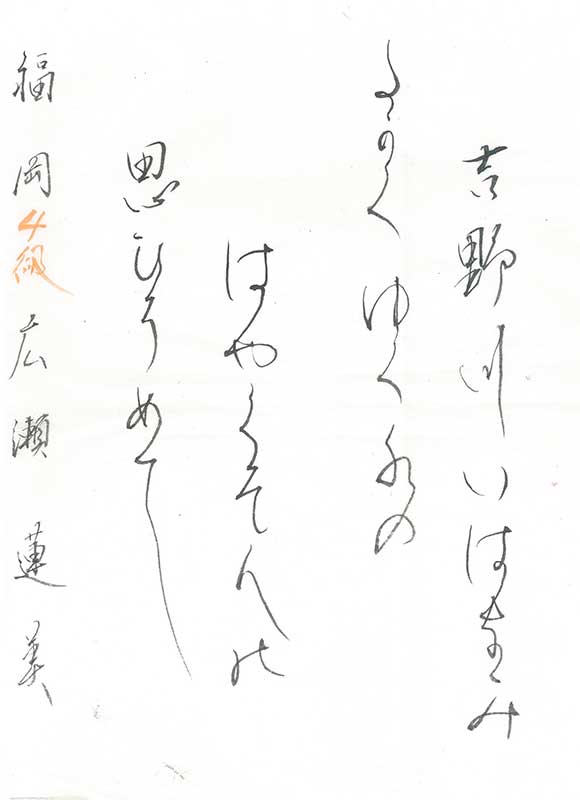 吉野川いはなみ
たかくゆく水の
はやくそ人を
思ひそめてし
福岡4級広瀬蓮美